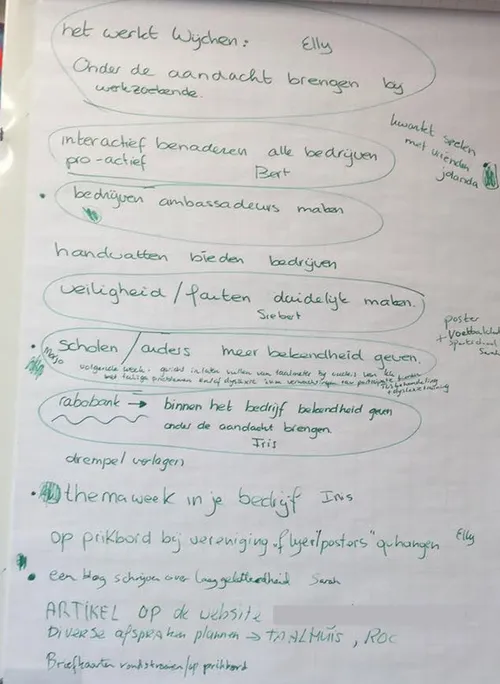 het werkt Wijchen: Elly
Onder de aandacht brengen bij
werkzoekende.
kwartet spelen
met vrienden
jolanda
interactief benaderen alle bedrijven
pro-actief Bert
bedrijven ambassadeurs maken
handvatten bieden bedrijven
veiligheid / fouten duidelijk maken.
Siebert
poster
+ Voetbalclub
Sportschool
Sarah
• scholen / ouders meer bekendheid geven.
Marjo
volgende week:
met talige problemen en/of dyslexie
+ dyslexietraining
rabobank → binnen het bedrijf bekendheid geven
onder de aandacht brengen.
Iris
drempel verlagen
• themaweek in je bedrijf Iris
op prikbord bij vereniging "flyer/posters" ophangen Elly
• een blog schrijven over laaggeletterdheid Sarah
ARTIKEL OP de website
Diverse afspraken plannen → TAALHUIS, ROC
Briefkaarten rondstrooien/op prikbord